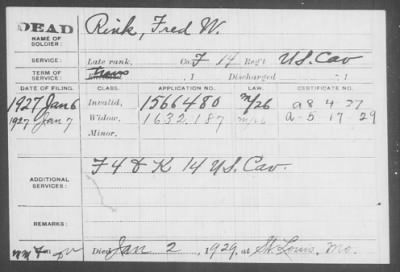 DEAD Rink, Fred W.
NAME OF SOLDIER:
SERVICE: Late rank, Co. F 14 Reg't U.S. Cav
TERM OF SERVICE: , 1 Discharged , 1
DATE OF FILING. CLASS. APPLICATION NO. LAW. CERTIFICATE NO.
1927 Jan 6 Invalid, 1566480 a 8 4 27
1927 Jan 7 Widow, 1632.187 a-5 17 29
Minor.
ADDITIONAL SERVICES: F 4 & K 14 U.S. Cav.
REMARKS:
Died Jan 2, 1929, at St. Louis, Mo.